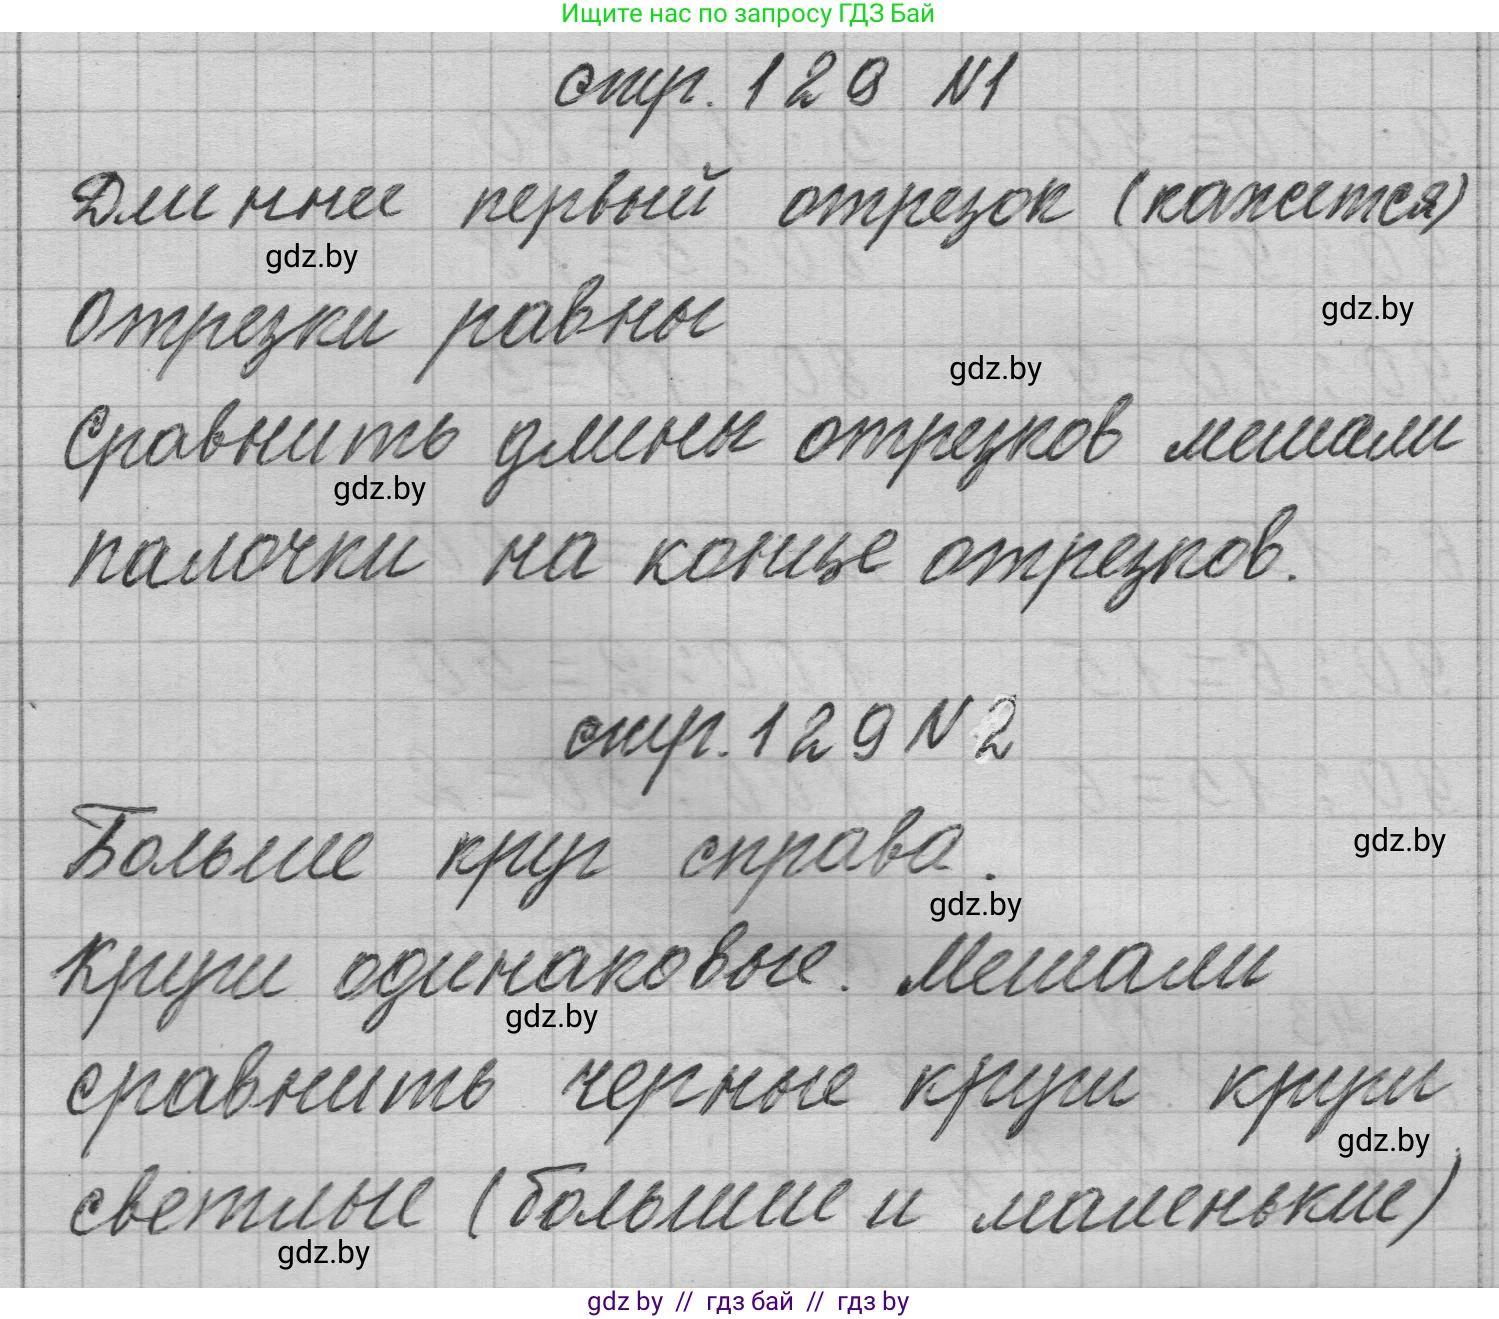 Ищите нас по запросу ГДЗ Бай
стр. 129 №1
Длиннее первый отрезок (кажется)
gdz.by
Отрезки равны
gdz.by
gdz.by
Сравнить длины отрезков мешали
gdz.by
палочки на конце отрезков.
стр. 129 №2
Больше круг справа.
gdz.by
gdz.by
Круги одинаковые. Мешали
gdz.by
сравнить черные круги круги
gdz.by
светлые (большие и маленькие)
gdz.by
gdz by // гдз бай // гдз by